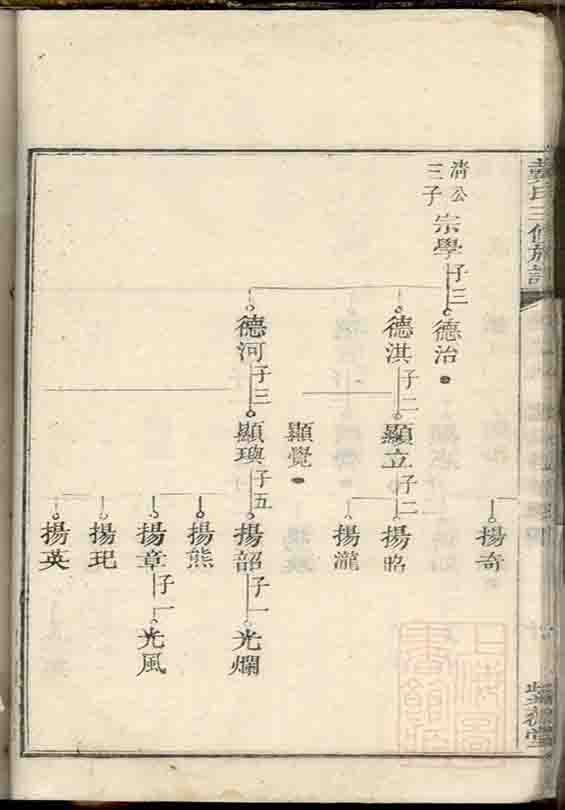 戴氏三修族譜
清公
三子
宗學
子三
德治
德淇
子二
顯立
子二
揚昭
揚瀧
顯覺
德河
子三
顯瑛
子五
揚韶
子一
光爛
揚熊
揚章
子一
光風
揚玘
揚英
揚奇
上海圖
書館藏